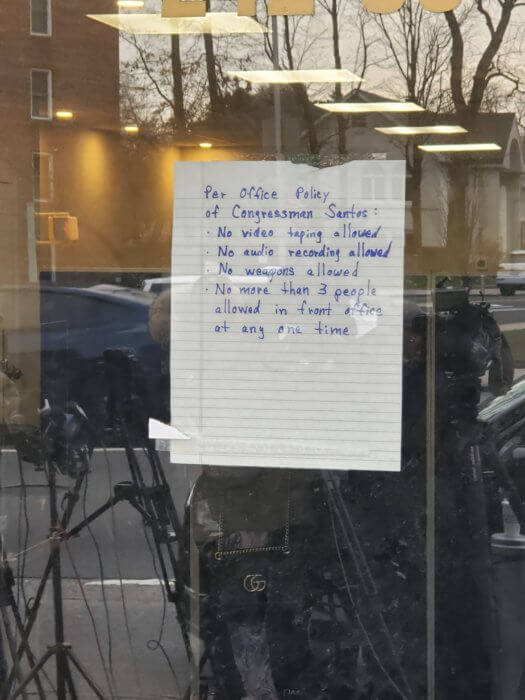 Per Office Policy
of Congressman Santos:
· No video taping allowed
· No audio recording allowed
· No weapons allowed
· No more than 3 people
allowed in front office
at any one time